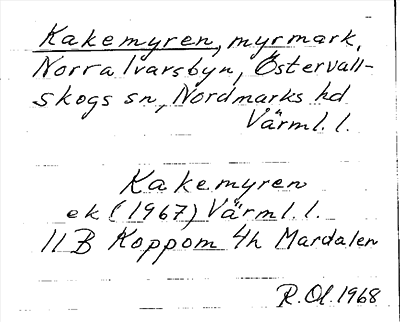 Kakemyren, myrmark,
Norra Ivarsbyn, Östervall-
skogs sn, Nordmarks hd
Värml. l.
Kakemyren
ek (1967) Värml. l.
11B Koppom 4h Mardalen
R. Ol. 1968